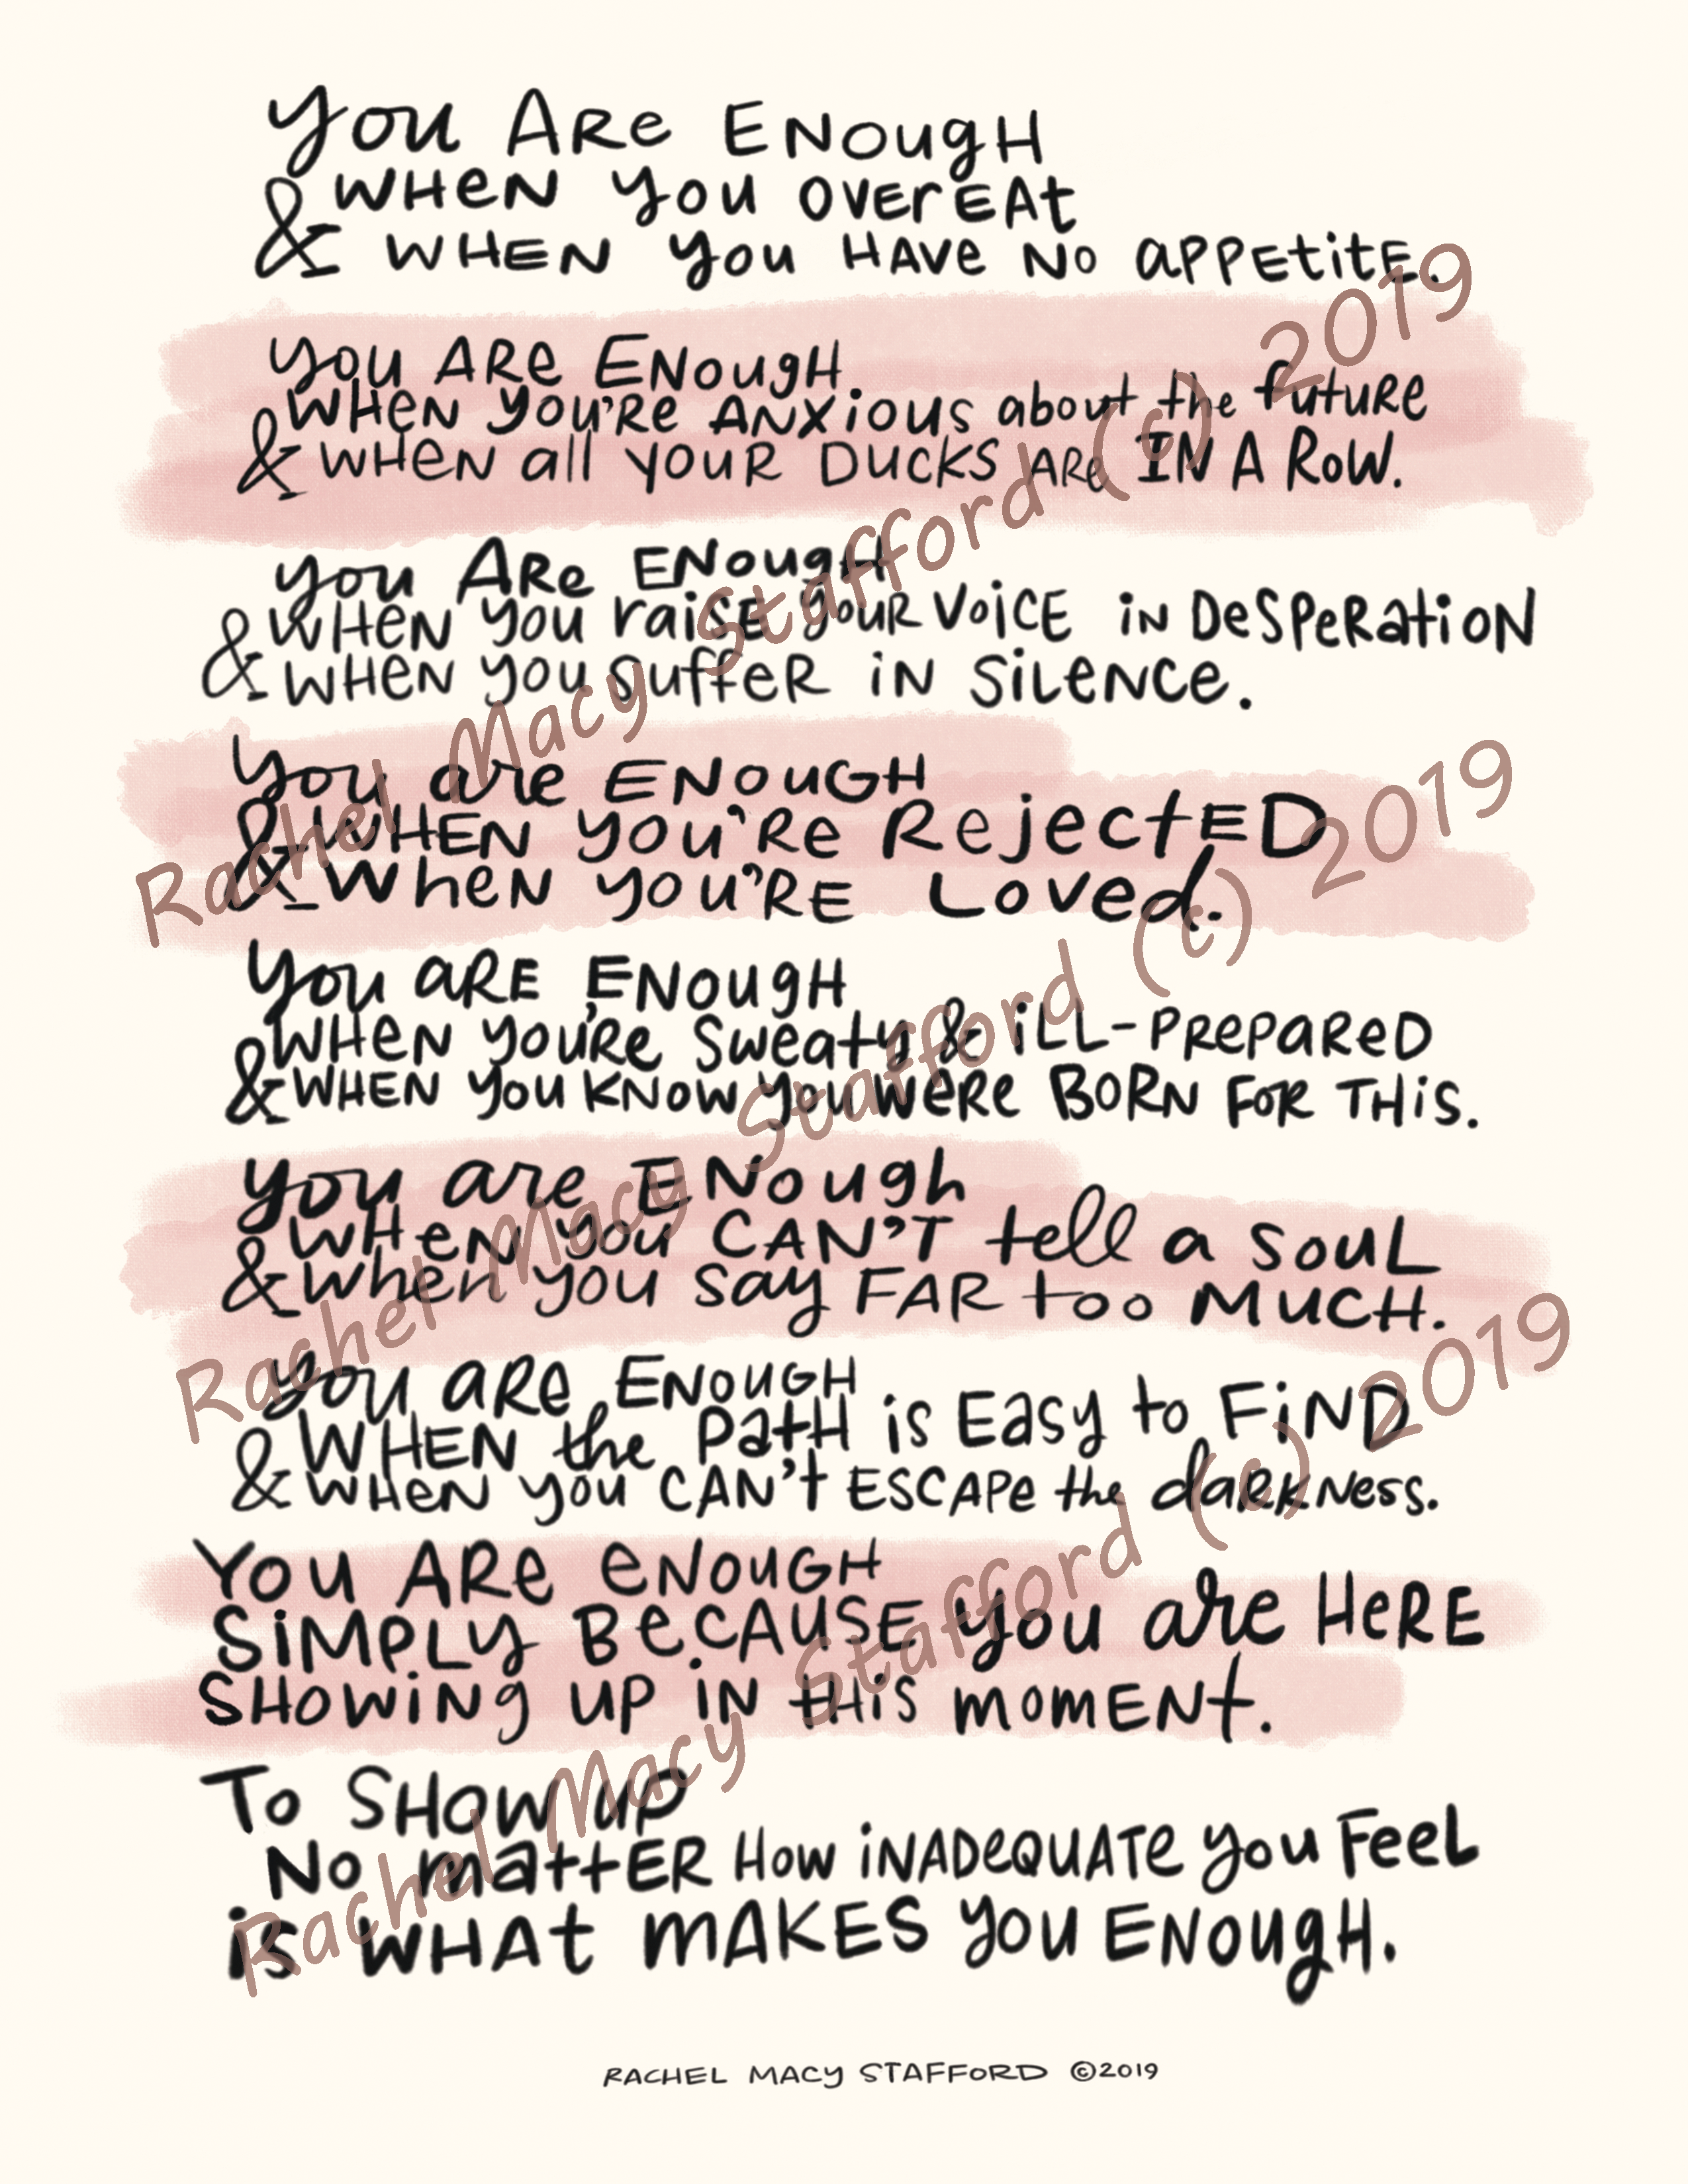 You Are Enough
& when you overeat
& when you have no appetite.
You are enough
when you're anxious about the future
& when all your ducks are in a row.
You are enough
& when you raise your voice in desperation
& when you suffer in silence.
You are enough
& when you're rejected
& when you're loved.
You are enough
when you're sweaty & ill-prepared
& when you know you were born for this.
You are enough
when you can't tell a soul
& when you say far too much.
You are enough
& when the path is easy to find
& when you can't escape the darkness.
You are enough
simply because you are here
showing up in this moment.
To show up
no matter how inadequate you feel
is what makes you enough.
Rachel Macy Stafford ©2019
Rachel Macy Stafford (c) 2019
Rachel Macy Stafford (c) 2019
Rachel Macy Stafford (c) 2019